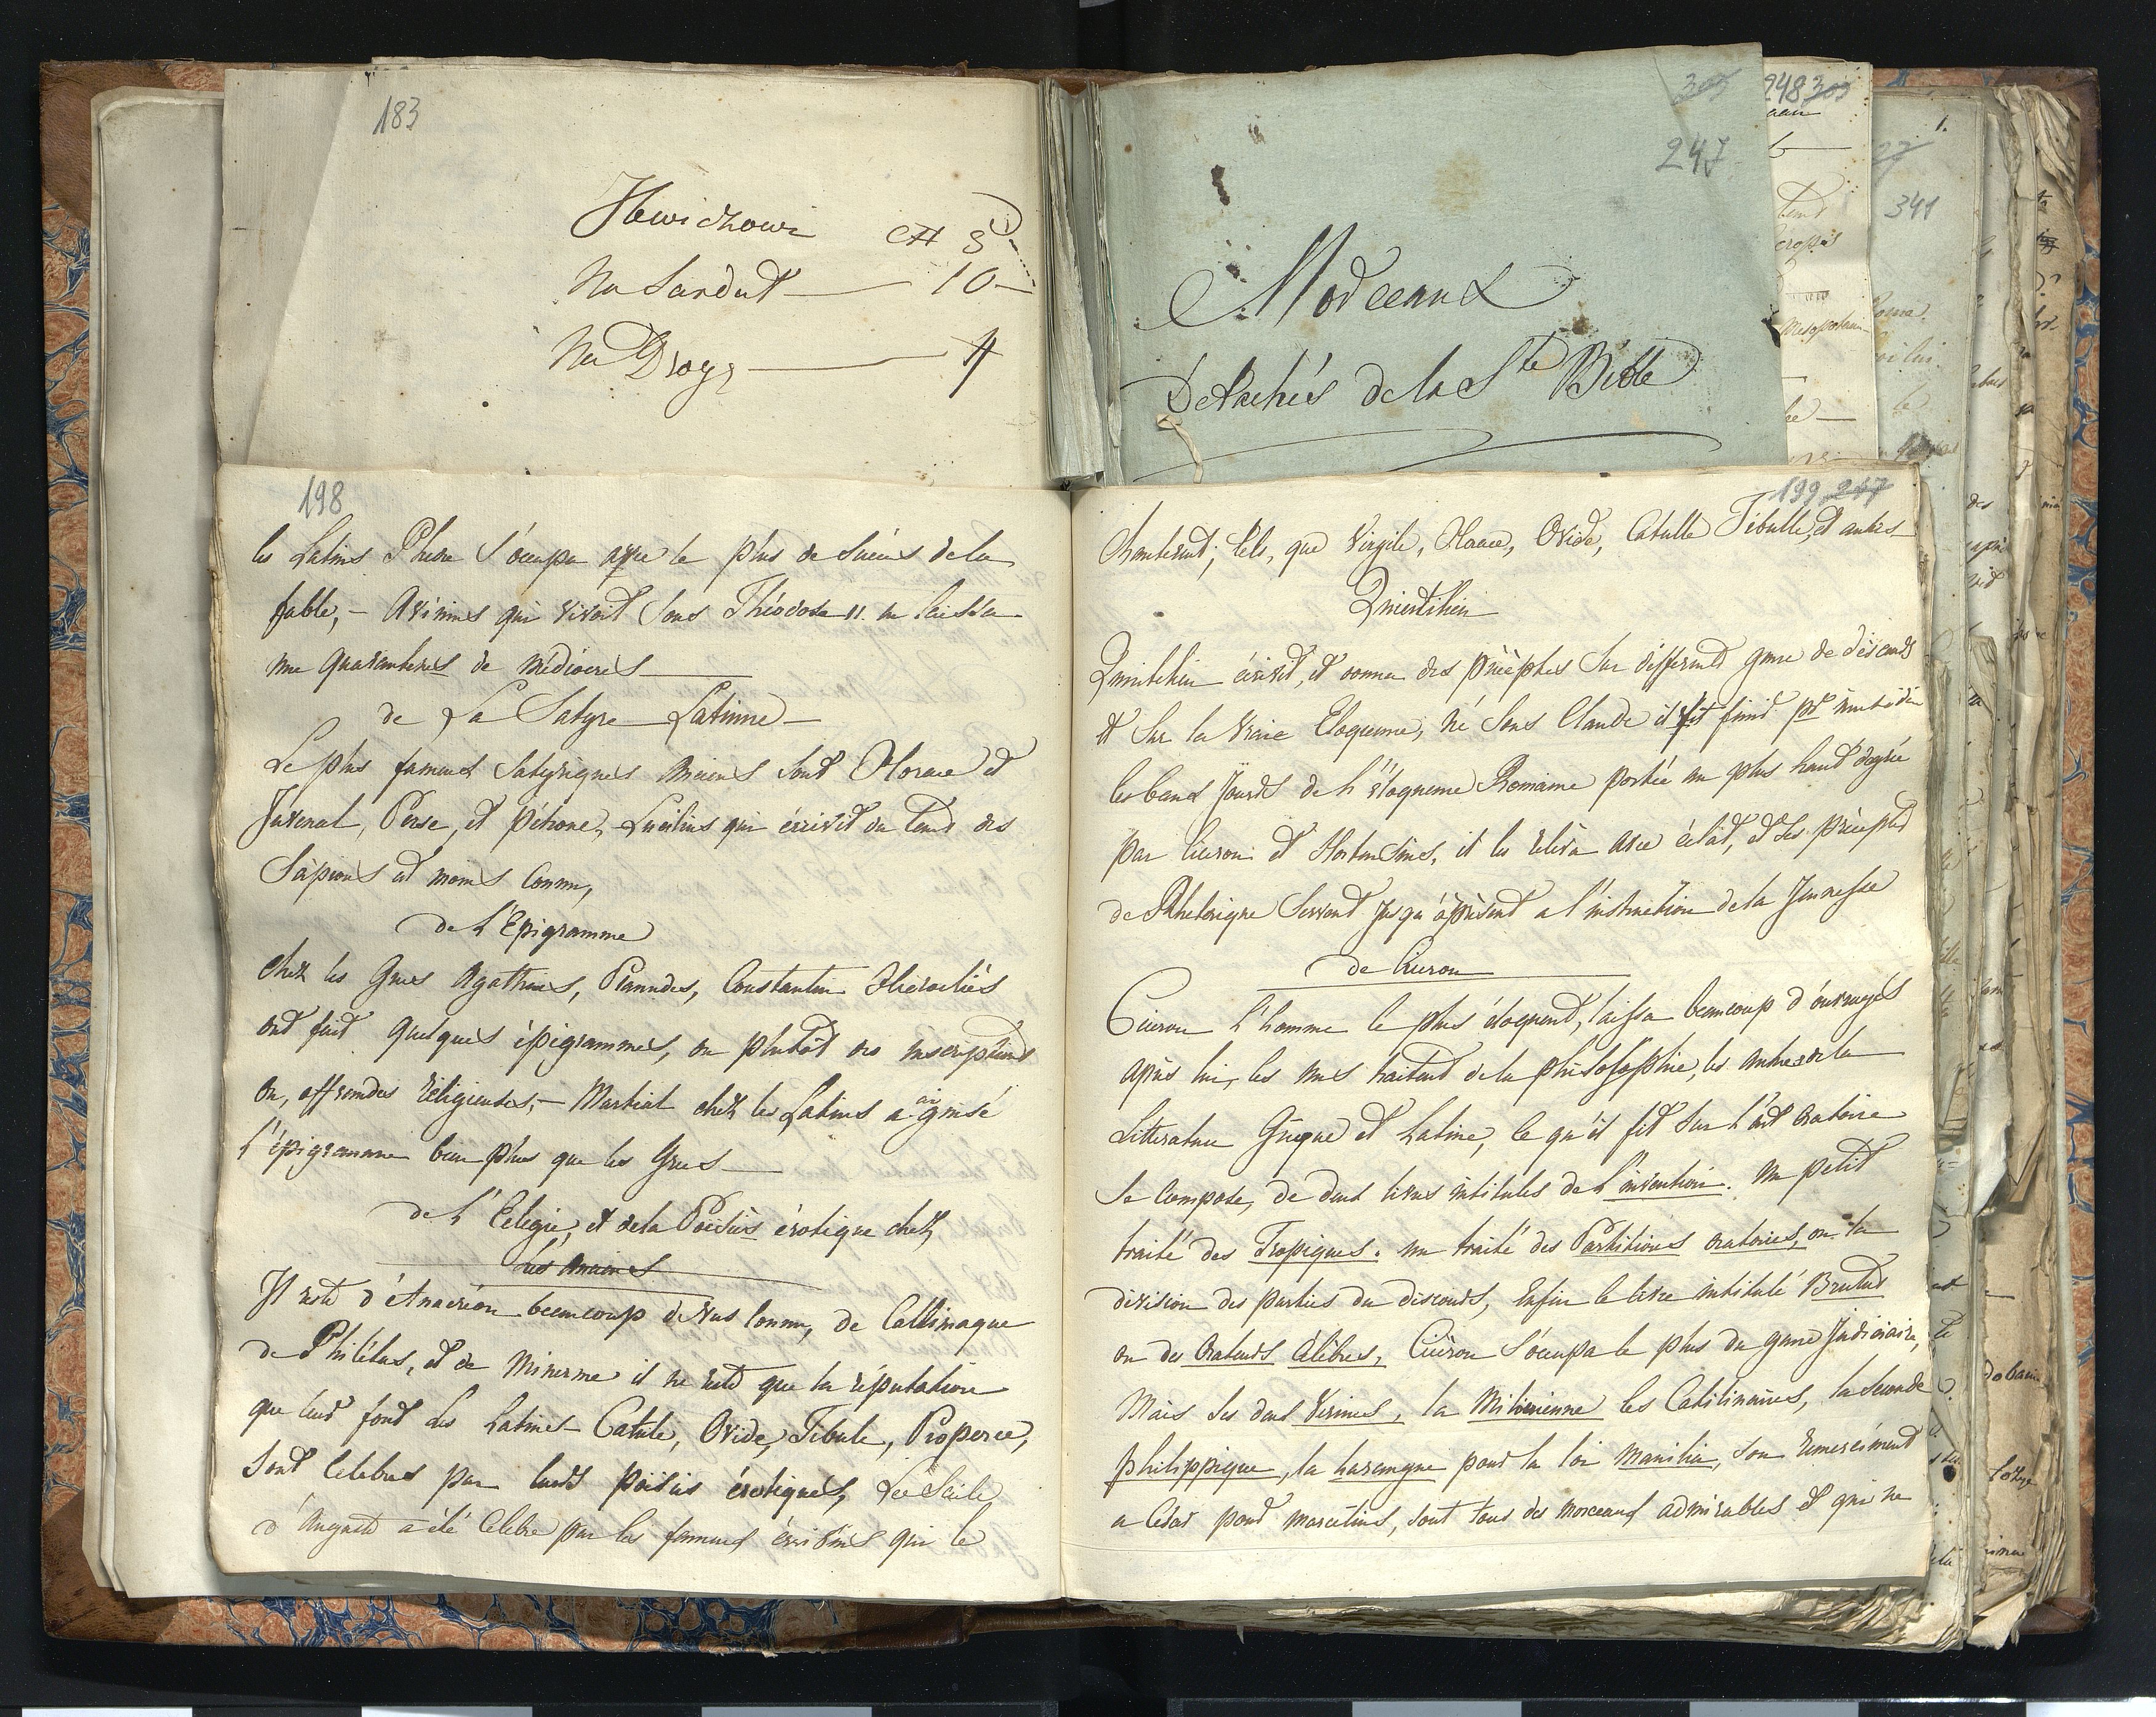 183
# 5
10
Na Drogę 4
305
247
Morceaux
Detachés de la Ste Bible
248 305
1.
27
341
Mesopotam
198
les Latins Phedre s'ocupa avec le plus de succès de la
fable, – Aviénus qui vivoit sous Théodose II. en laissa
une quarantenes de médiocres
de La Satyre Latinne
Le plus fameux Satyriques anciens sont Horace et
Juvenal, Perse, et pétrone, Lucilius qui écrivit du tems des
Scipions est moins connu,
de l'Epigramme
chez les Grecs Agathias, Planudes, Constantin Hieroclès
ont fait quelques épigrammes, ou plutôt des inscriptions
ou, offrandes réligieuses, – Martial chez les Latins a aiguisé
l'épigramme bien plus que les Grecs
de l'Elegie, et de la Poésies érotique chez
les anciens
Il reste d'Anacréon beaucoup de vers connu, de Callimaque
de Philétas, et de Minerme il ne reste que la réputation
que leur font les Latins Catule, Ovide, Tibule, Properce,
sont celebres par leurs poësies érotiques, Le Siecle
d'Auguste a été celebre par les fameux écrivains qui le
199 247
chanterent; tels, que Virgile, Horace, Ovide, Catulle Tibulle, et autres
Quintilien
Quintilien écrivit, et donna des préceptes sur differents genre de discours
et sur la vraie Eloquence, né sous Claude il
les beaux jours de l'éloquence Romaine portée au plus haut dégrée
par Ciceron et Hortensius, il les releva avec éclat, et ses préceptes
de Rhetorique servent jusqu'àprésent a l'instruction de la Jeunesse
de Ciceron
Ciceron l'homme le plus éloquent, laissa beaucoup d'ouvrages
après lui, les unes traitent de la philosophie, les autres de la
Litterature Grèque et Latine, ce qu'il fit sur l'art oratoire
se compose, de deux livres intitules de l'invention. un petit
traité des Tropiques. un traité des Partitions oratoires, ou la
division des parties du discours, Enfin le livre intitulé Brutus
ou des Orateurs célèbres, Ciceron s'ocupa le plus du genre Judiciaire,
Mais ses deux Verines, la Milonienne les Catilinaires, la seconde
philippique, la harangue pour la loi Manilia, son remerciment
a César pour Marcellus, sont tous des morceaux admirables et qui ne